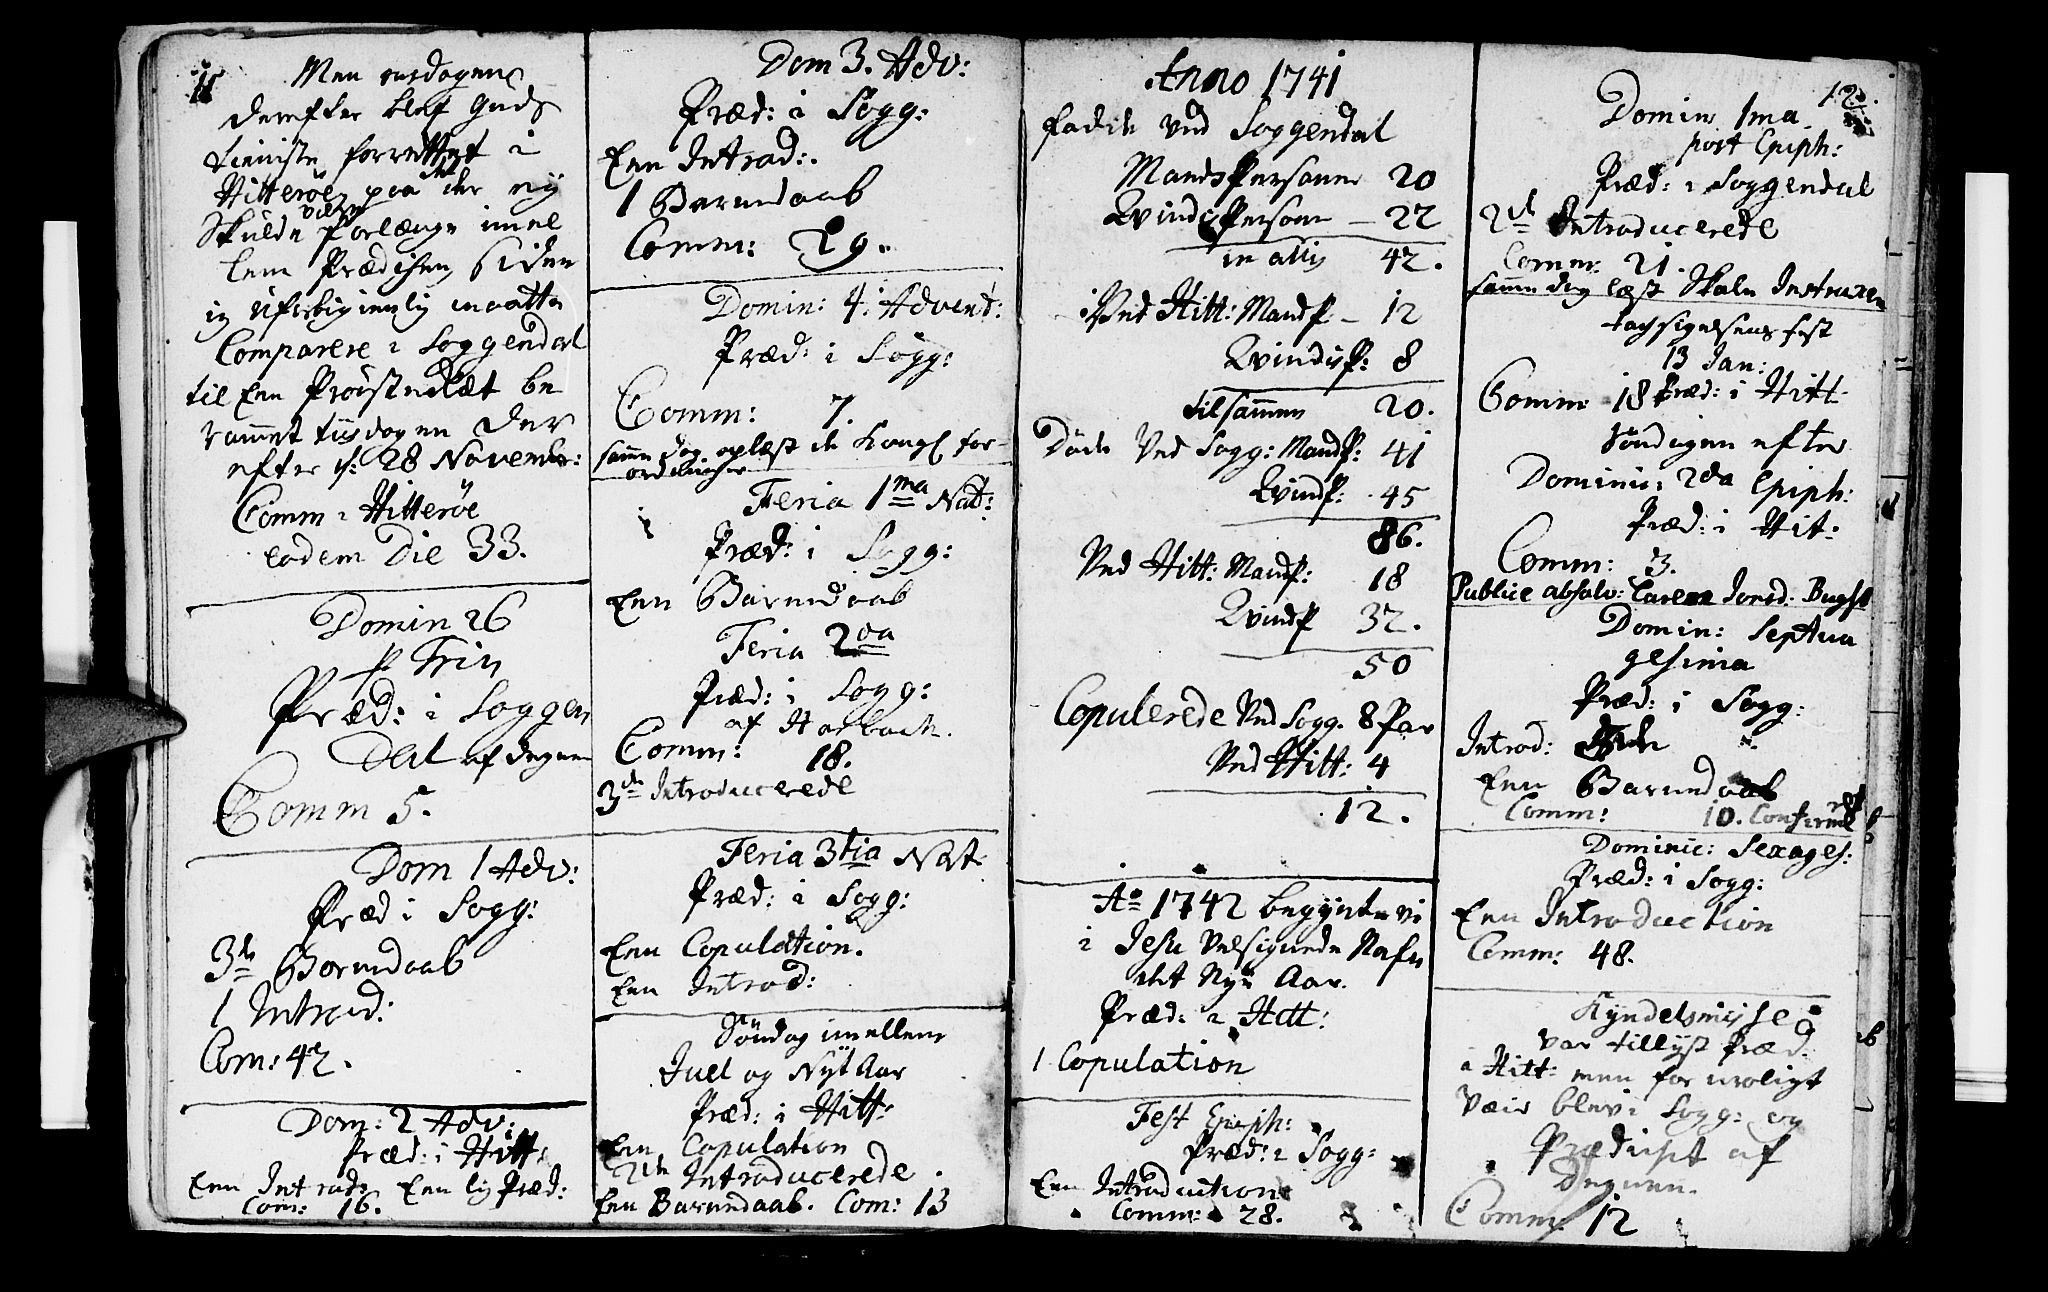 11
Men onsdagen
derefter blef Guds
tieniste forrettet i
Hitterøe, paa det der ey
Skulde være Forlænge imel
lem Prædiken, Siden
ieg Ufeilbigierlig maatte
Comparere i Soggendal
til Een Prousteræt be
rammet tiisdagen der
efter d: 28 Novembr:
Comm i Hitterøe
eodem Die 33.
Domin 26
p Trin
Præd: i Soggen
Dal af degnen
Comm 5.
Dom 1 Adv:
Præd i Sogg:
3de Barnedaab
1 Introd:
Com: 42.
Dom: 2 Adv:
Præd: i Hitt:
Een Introd: Een lig Præd:
Com: 16.
Dom 3. Adv:
Præd: i Sogg:
Een Introd:
1 Barnedaab
Comm: 29.
Domin: 4. Advent:
Præd: i Sogg:
Comm: 7.
samme dag oplæst de Kongl for-
ordninger
Feria 1ma Nat:
Præd: i Sogg:
Een Barnedaab
Feria 2da
Præd: i Sogg:
af Horbach.
Comm: 18.
3de Introducerede
Feria 3tia Nat:
Præd: i Sogg:
Een Copulation.
Een Introd:
Søndag imellem
Juel og Nyt Aar
Præd: i Hitt:
Een Copulation
2de Introducerede
Een Barnedaab. Com: 13
Anno 1741
fødde ved Soggendal
Mands Personer 20
Qvindes Person - 22
in allis 42.
Ved Hitt: Mandp - 12
Qvindisp: 8
tilsammen 20.
Døde Ved Sogg: Mandp: 41
Qvindp: 45
86.
Ved Hitt: Mandp: 18
Qvindp 32.
50
Copulerede Ved Sogg. 8 Par
Ved Hitt: 4
12.
Ao 1742 begynte vi
i Jesu Velsignede Nafn
det Nye Aar.
Præd: i Hitt:
1 Copulation
Fest Epiph:
Præd: i Sogg:
Een Introduction
Comm: 28.
12.
Domin 1ma
post Epiph:
Præd: i Soggendal
2de Introducerede
Comm: 21.
samme dag læst Skole Instruxen
tachsigelsens fest
13 Jan:
Præd: i Hitt
Comm 18
Søndagen efter
Dominic: 2da Epiph:
Præd: i Hit:
Comm: 3.
Publice absolv: Caren Jonsd:
Domin: Septua
gesima
Præd: i Sogg:
Introd:
Een Barnedaab
Comm: 10.
Dominic: Sexages:
Præd: i Sogg:
Een Introduction
Comm: 48.
Kyndelmisse
var tillyst Præd:
i Hitt: men for uroligt
Veir blev i Sogg: og
Prædiket af
Degnen.
Comm: 12